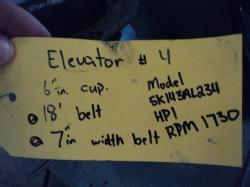 Elevator # 4
6" in cup.
18' belt
7" in width belt
Model
5K143AL234
HP1
RPM 1730